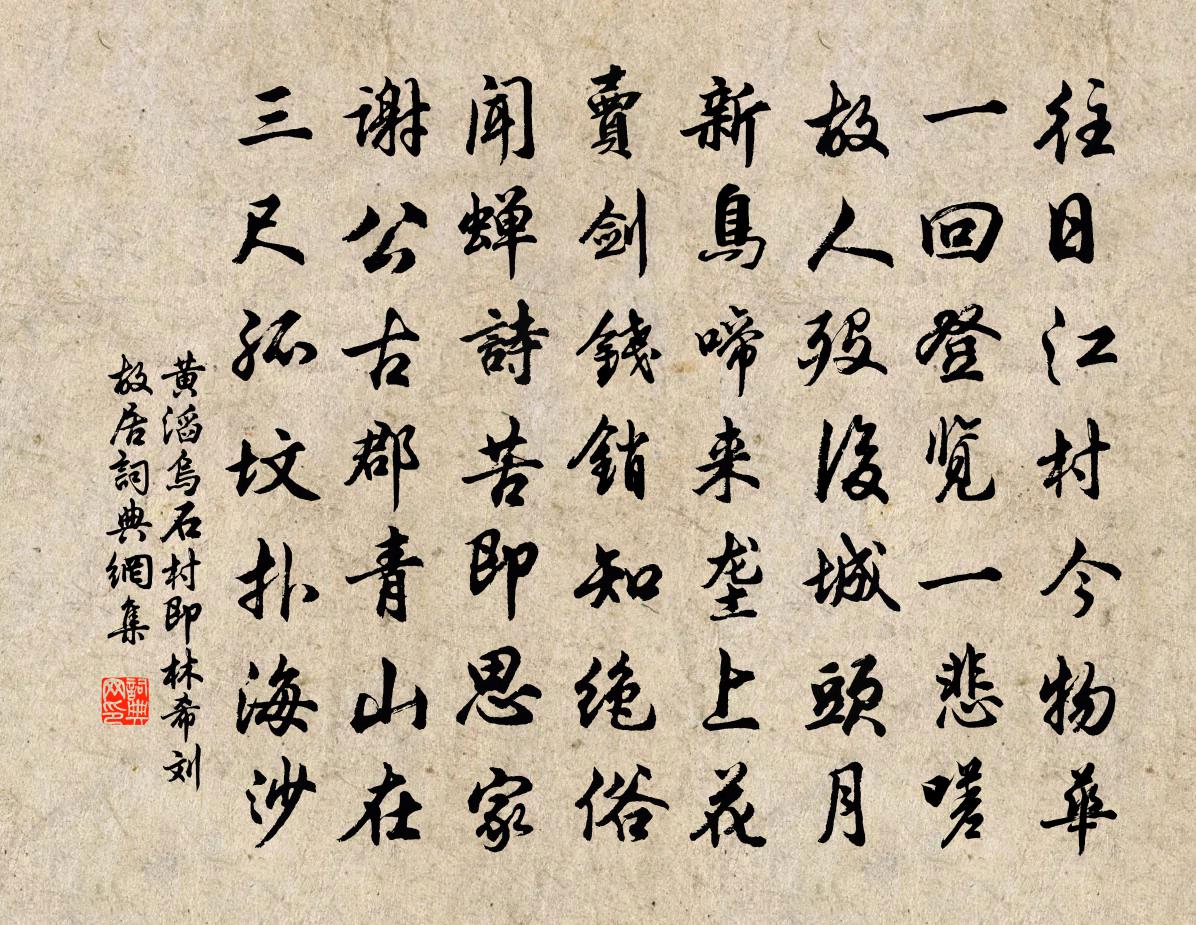 往日江村今物華
一回登览一悲嗟
故人殁後城頭月
新鳥啼来垄上花
賣剑錢銷知绝俗
闻蝉詩苦即思家
谢公古郡青山在
三尺孤坟扑海沙
黄滔烏石村即林希刘
故居詞典網集
詞典
网印